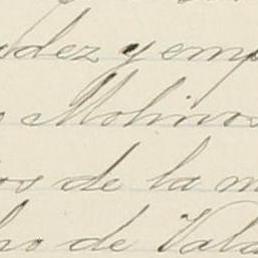 dez y emp
Molinos
os de la m
ho de Vala